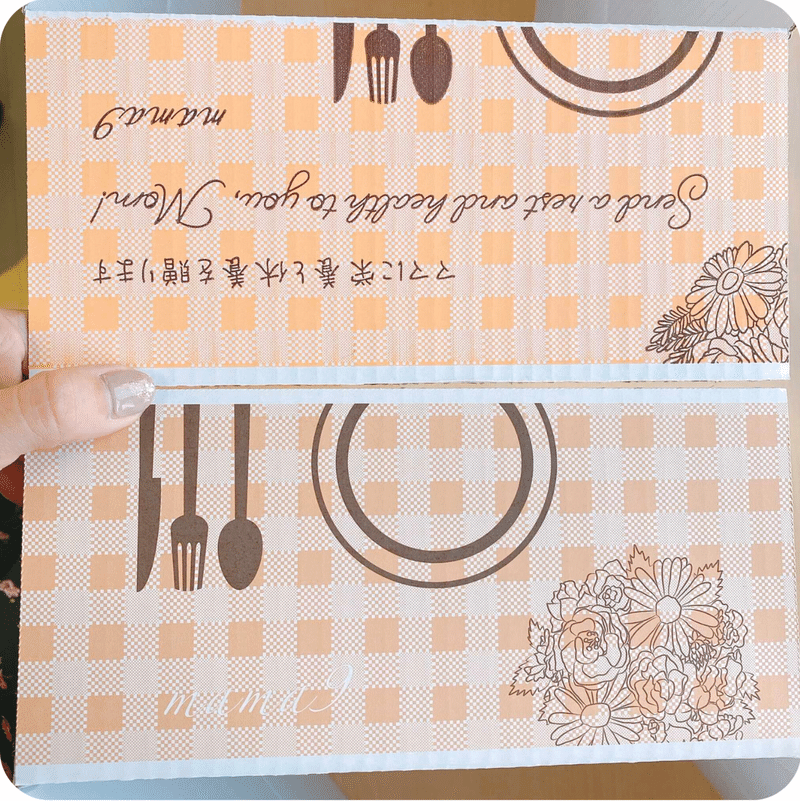 ママに栄養と休養を贈ります
Send a rest and health to you, Mom!
mama9
mama9